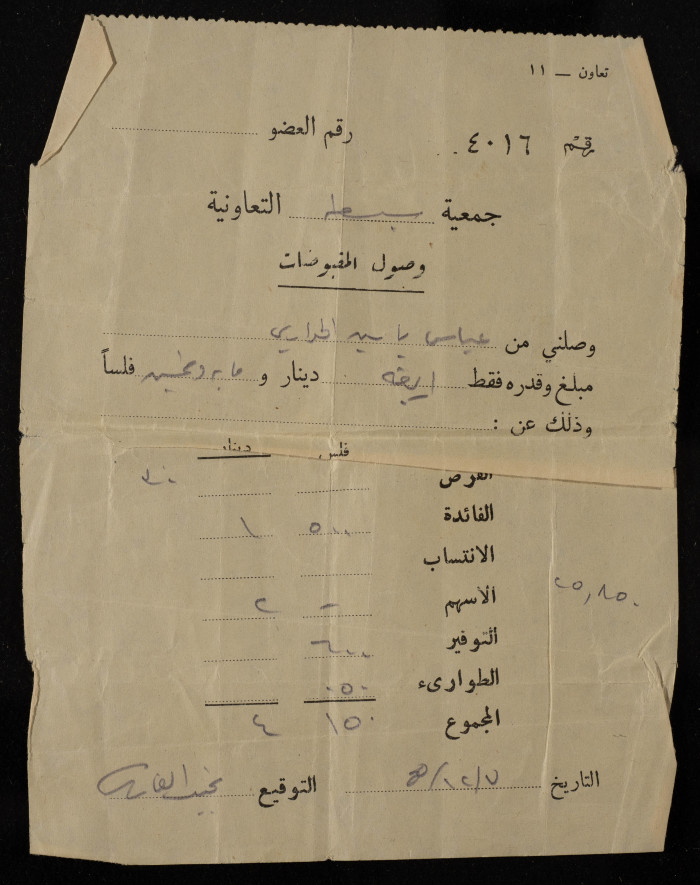 تعاون — ١١
رقم ٤٠١٦ رقم العضو
جمعية التعاونية
وصول المقبوضات
وصلني من عباس ياسين
مبلغ وقدره فقط اربعة دينار و مايه وخمسين فلساً
وذلك عن :
فلس دينار
القرض
الفائدة ٥٠٠ ١
الانتساب
الأسهم - ٢
التوفير ٦٠٠
الطوارىء ٠٥٠
٢٥,٨٥٠
المجموع ١٥٠ ٤
التاريخ ٧/١٢/ التوقيع نجيب